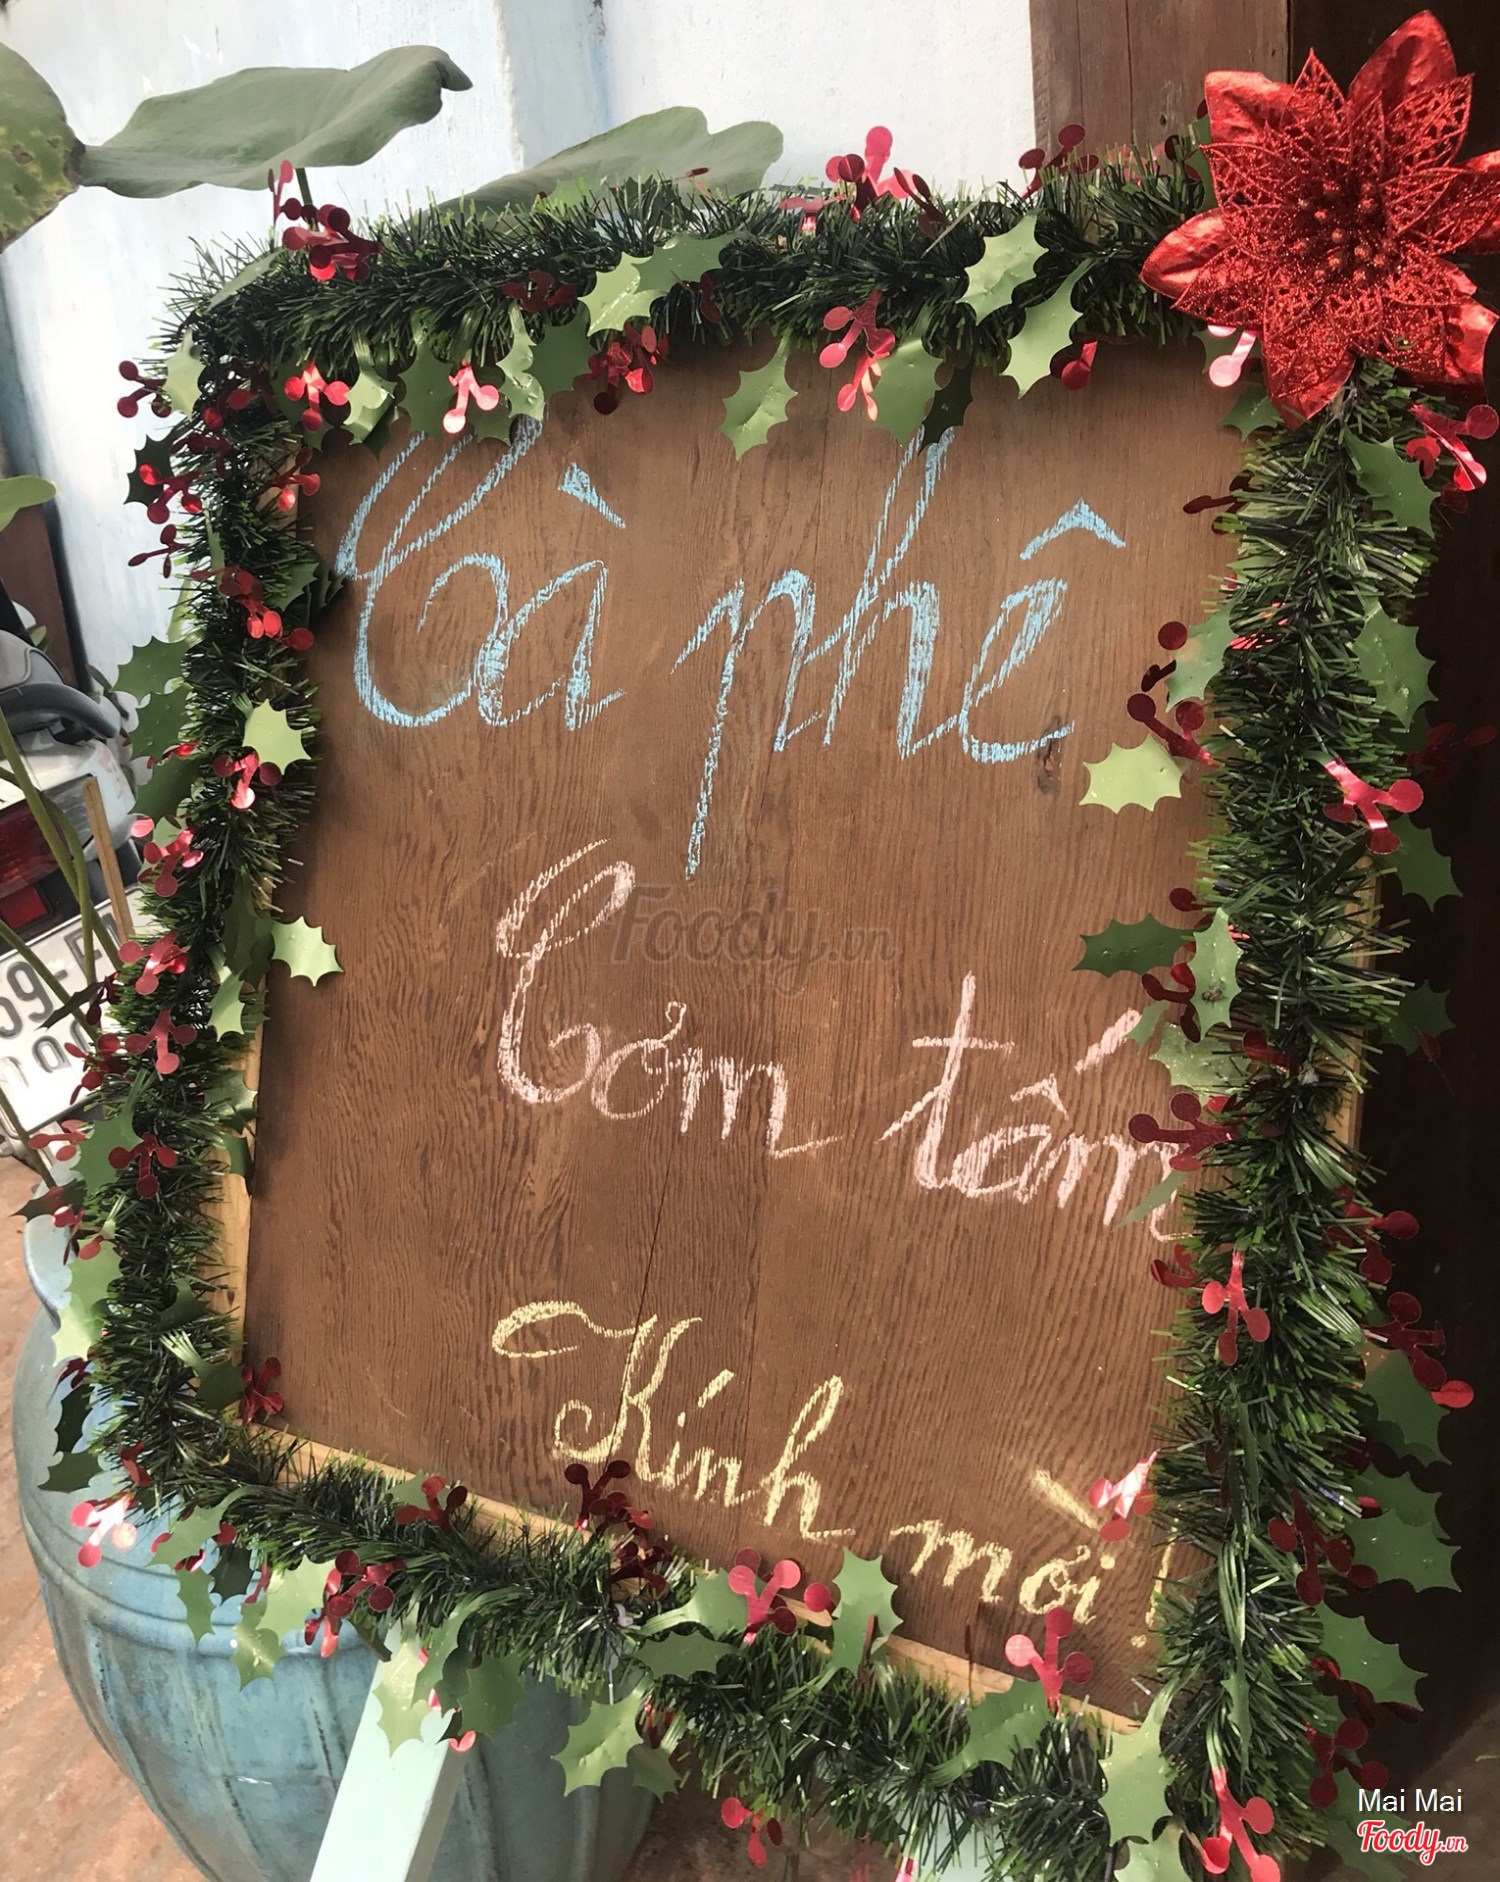 Cà phê
Foody.vn
Cơm tấm
Kính mời!
59-F1
Mai Mai
Foody.vn